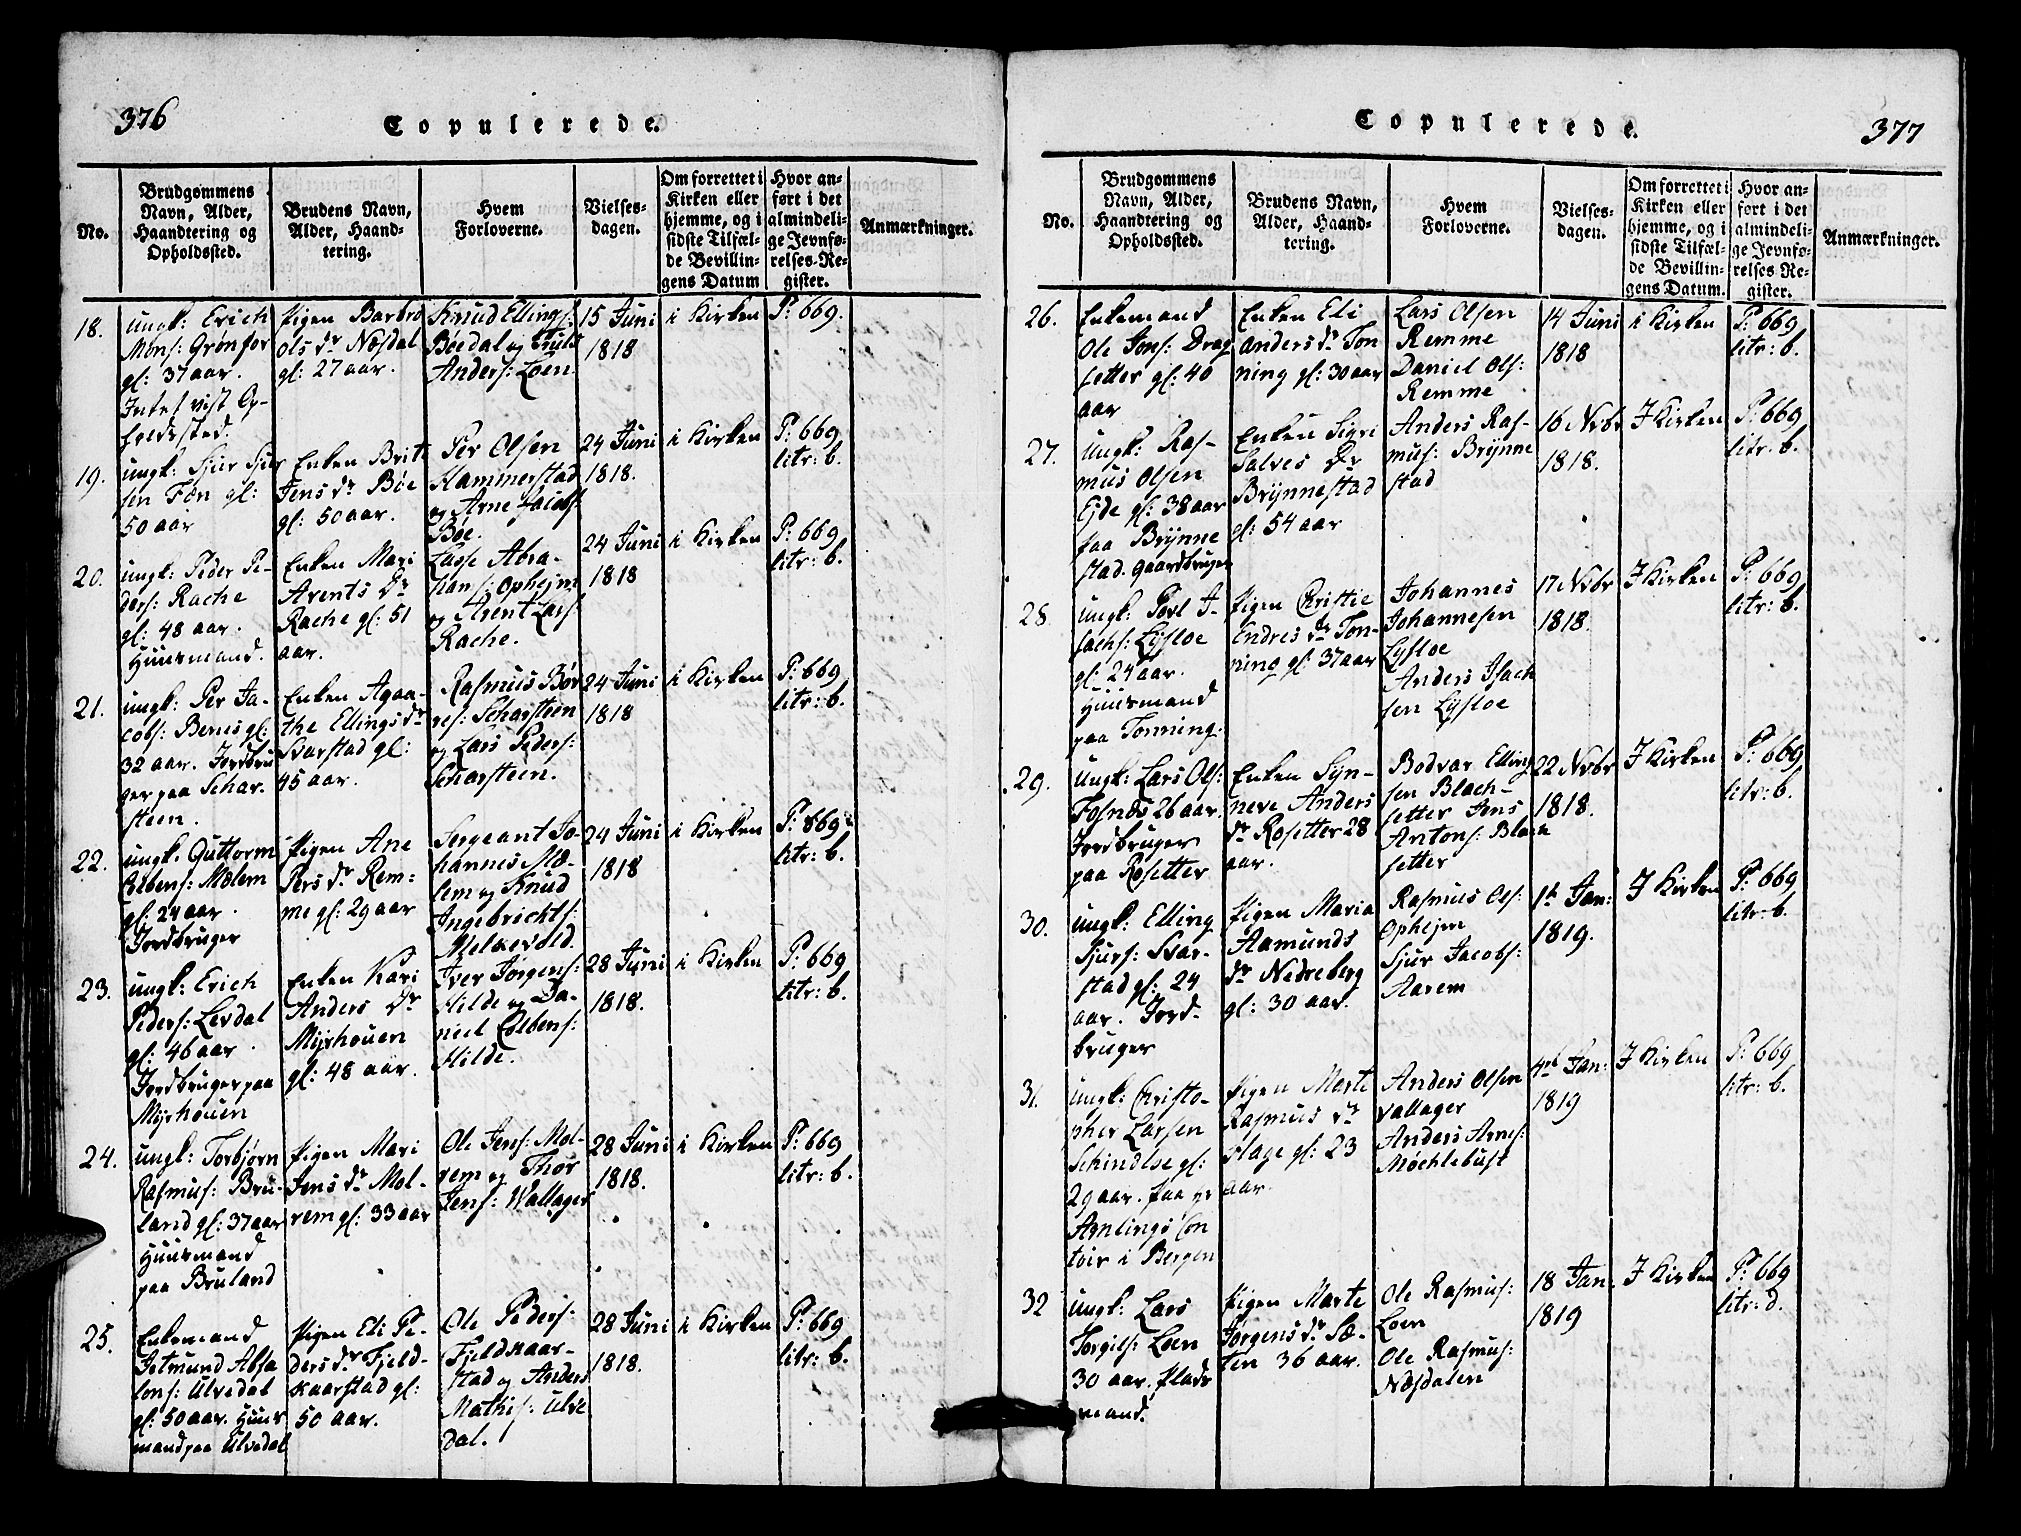 376
Copulerede.
No.
Brudgommens
Navn, Alder,
Haandtering og
Opholdssted.
Brudens Navn,
Alder, Haand-
tering.
Hvem
Forloverne.
Vielses-
dagen.
Om forrettet i
Kirken eller
hjemme, og i
sidste Tilfæl-
de Bevillin-
gens Datum
Hvor an-
ført i det
almindeli-
ge Jevnfø-
relses-Re-
gister.
Anmærkninger.
18.
ungk: Erich
Mons: Grønfor
gl: 37 aar.
vist Op-
holdssted.
Pigen Barbro
Ols dr Næsdal
gl: 27 aar.
Knud Ellings:
Bøedal og
Anders: Loen
15 Juni
1818
i Kirken
P: 669.
19.
ungk: Sjur Sjur
sen Fæn gl:
50 aar
Enken Brite
Jens dr Bøe
gl: 50 aar.
Per Olsen
Hammerstad
og Arne Jacobs:
Bøe.
24 Juni
1818.
i Kirken
P: 669
litr: b.
20.
ungk: Peder Pe-
ders: Rache
gl: 48 aar.
Huusmand.
Enken Mari
Arents dr
Rache gl: 51
aar.
Lasse Abra-
hams: Ophejm
og Arent Lars:
Rache.
24 Juni
1818
i Kirken
P: 669
litr: b.
21.
ungk: Per Ja-
cobs: Benes gl:
32 aar. Jordbru
ger paa Schar-
steen.
Enken Agaa-
the Ellings dr
Svarstad gl:
45 aar.
Rasmus Bør
res: Scharsteen
og Lars Peders:
Scharsteen.
24 Juni
1818
i Kirken
P: 669
litr: b.
22.
ungk. Guttorm
Mælem
gl: 24 aar.
Jordbruger
Pigen Ane
Pers dr Rem-
me gl: 29 aar
Sergeant Jo-
hannes Mæ-
lem og Knud
Ingebrickts:
Melkevold.
24 Juni
1818
i Kirken
P: 669
litr: b.
23.
ungk: Erich
Peders: Levdal
gl: 46 aar.
Jordbruger paa
Myrhouen
Enken Kari
Anders dr
Myrhouen
gl: 48 aar.
Iver Jørgens:
Hilde og Da-
niel Colbens:
Hilde.
28 Juni
1818.
i Kirken
P: 669
litr: b.
24.
ungk: Torbjørn
Rasmus: Bru-
land gl: 37 aar
Huusmand
paa Bruland
Pigen Mari
Jens dr Mol-
rem gl: 33 aar
Ole Jens: Mol-
rem og Thor
Jens: Wallager
28 Juni
1818.
i Kirken
P: 669
litr: b.
25.
Enkemand
Jetmund Absa
lons: Ulvedal
gl: 50 aar. Huus
mand paa Ulvedal
Pigen Eli Pe-
ders dr Fjeld-
skaarstad gl:
50 aar.
Ole Peders:
Fjeldskaar-
stad og Anders
Mathis: Ulve
dal.
28 Juni
1818.
i Kirken
P: 669
litr: b.
377
Copulerede.
No.
Brudgommens
Navn, Alder,
Haandtering og
Opholdssted.
Brudens Navn,
Alder, Haand-
tering.
Hvem
Forloverne.
Vielses-
dagen.
Om forrettet i
Kirken eller
hjemme, og i
sidste Tilfæl-
de Bevillin-
gens Datum.
Hvor an-
ført i det
almindeli-
ge Jevnfø-
relses Re-
gister.
Anmærkninger.
26.
Enkemand
Ole Jons: Drag
setter gl: 40
aar
Enken Eli
Anders dr Ton
ning gl: 30 aar
Lars Olsen
Remme
Daniel Ols:
Remme
14 Juni
1818
i Kirken
P: 669
litr: b.
27.
ungk: Ras-
mus Olsen
Ejde gl: 38 aar
paa Brynne
stad. Gaardbruger
Enken Sigri
Salves dr
Brynnestad
gl: 54 aar
Anders Ras-
mus: Brynne
stad
16 Nvbr
1818.
I Kirken
P: 669
litr. b.
28.
ungk: Povl I-
sachs: Lysloe
gl: 24 aar.
Huusmand
paa Tonning.
Pigen Christie
Endres dr Ton-
ning gl: 37 aar
Johannes
Johannesen
Lysloe
Anders Isach
sen Lysloe
17 Nvbr
1818.
I Kirken
P: 669
litr: b.
29.
ungk: Lars Ols:
Fosnæs 26 aar.
Jordbruger
paa Rosetter
Enken Syn-
neve Anders
dr Rosetter 28
aar.
Bodvar Elling
sen Blach-
setter Jens
Antons: Blach
setter
22 Nvbr
1818.
I Kirken
P: 669
litr: b.
30.
ungk: Elling
Sjurs: Svar-
stad gl: 24
aar. Jord-
bruger
Pigen Maria
Aamunds
dr Nedreberg
gl: 30 aar.
Rasmus Ols:
Ophejm
Sjur Jacobs:
Aarem
1t Jan:
1819.
I Kirken
P: 669
litr: b.
31.
ungk: Christo-
pher Larsen
Schindloe gl:
29 aar. paa
Amlings Con
toir i Bergen
Pigen Marte
Rasmus dr
Hage gl: 23
aar.
Anders Olsen
Vallager
Anders Arnes:
Møchlebust
Jan:
1819
I Kirken
P: 669
litr: b.
32
ungk: Lars
Torgils: Loen
30 aar. Plads
mand.
Pigen Marte
Jørgens dr Sæ-
ten 36 aar.
Ole Rasmus:
Loen
Ole Rasmus:
Næsdalen
18 Jan.
1819
I Kirken
P: 669
litr: d.